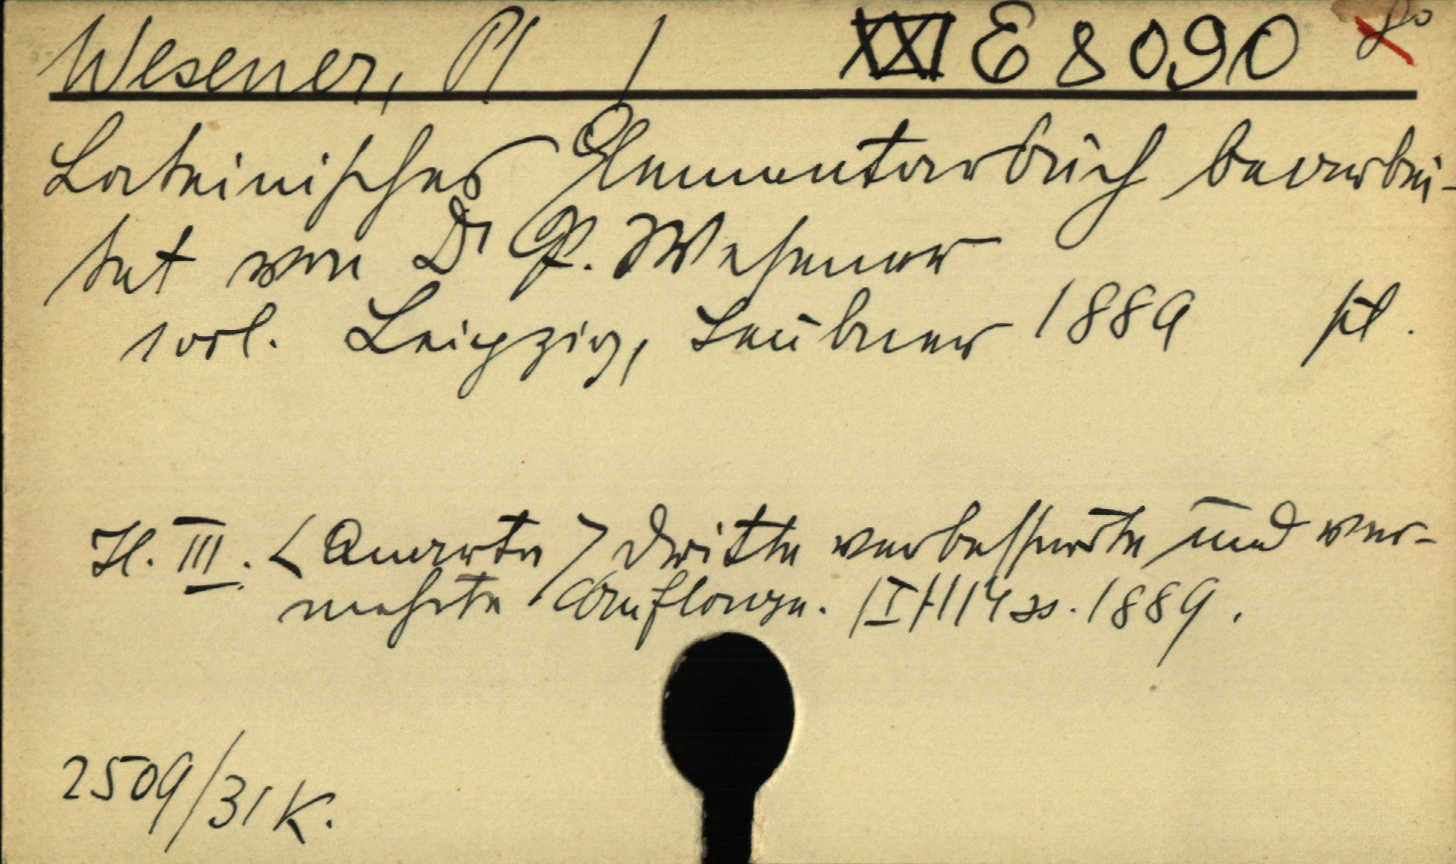 Wesener, P / XXI E 8090 80
Lateinisches Elementarbuch bearbei-
tet von Dr P. Wesener
1 vol. Leipzig, Teubner 1889
Tl. III. <Quarta> Dritte verbesserte und ver-
mehrte Auflage. /I+114 ss. 1889.
2509/31 K.